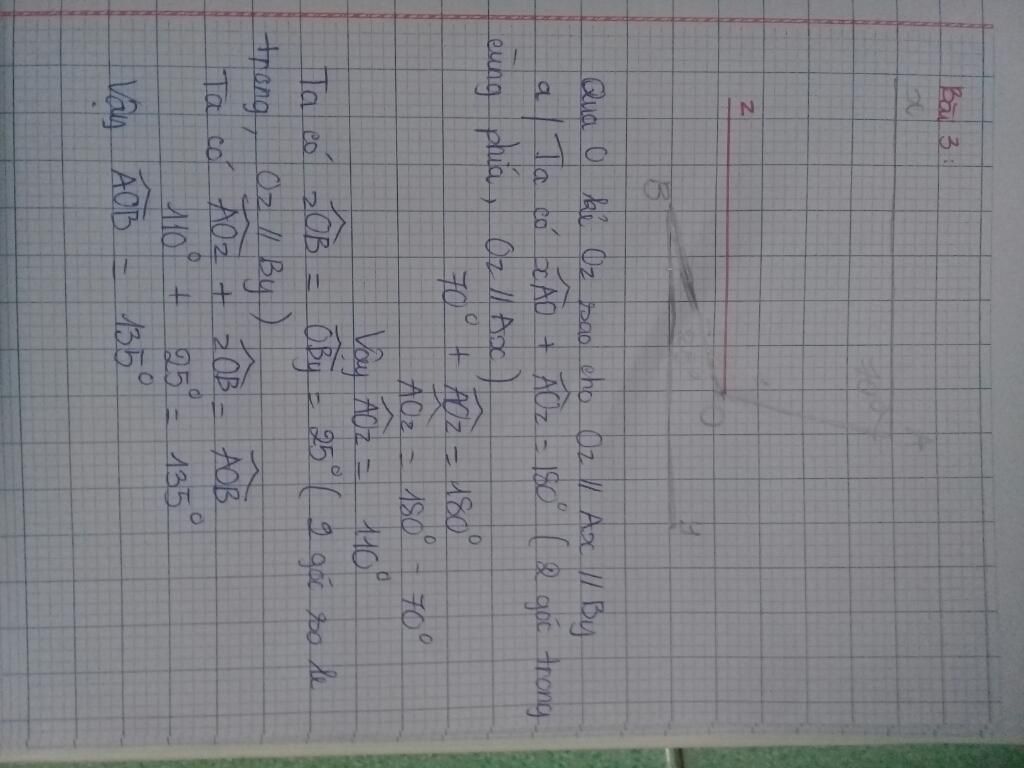 Bài 3:
x
A
70°
z
O
25°
B
y
Qua O kẻ Oz sao cho Oz // Ax // By
a/ Ta có xÂO + AÔz = 180° ( 2 góc trong
cùng phía, Oz // Ax)
70° + AÔz = 180°
AÔz = 180° - 70°
Vậy AÔz = 110°
Ta có zÔB = OB̂y = 25° ( 2 góc so le
trong, Oz // By )
Ta có AÔz + zÔB = AÔB
110° + 25° = 135°
Vậy AÔB = 135°